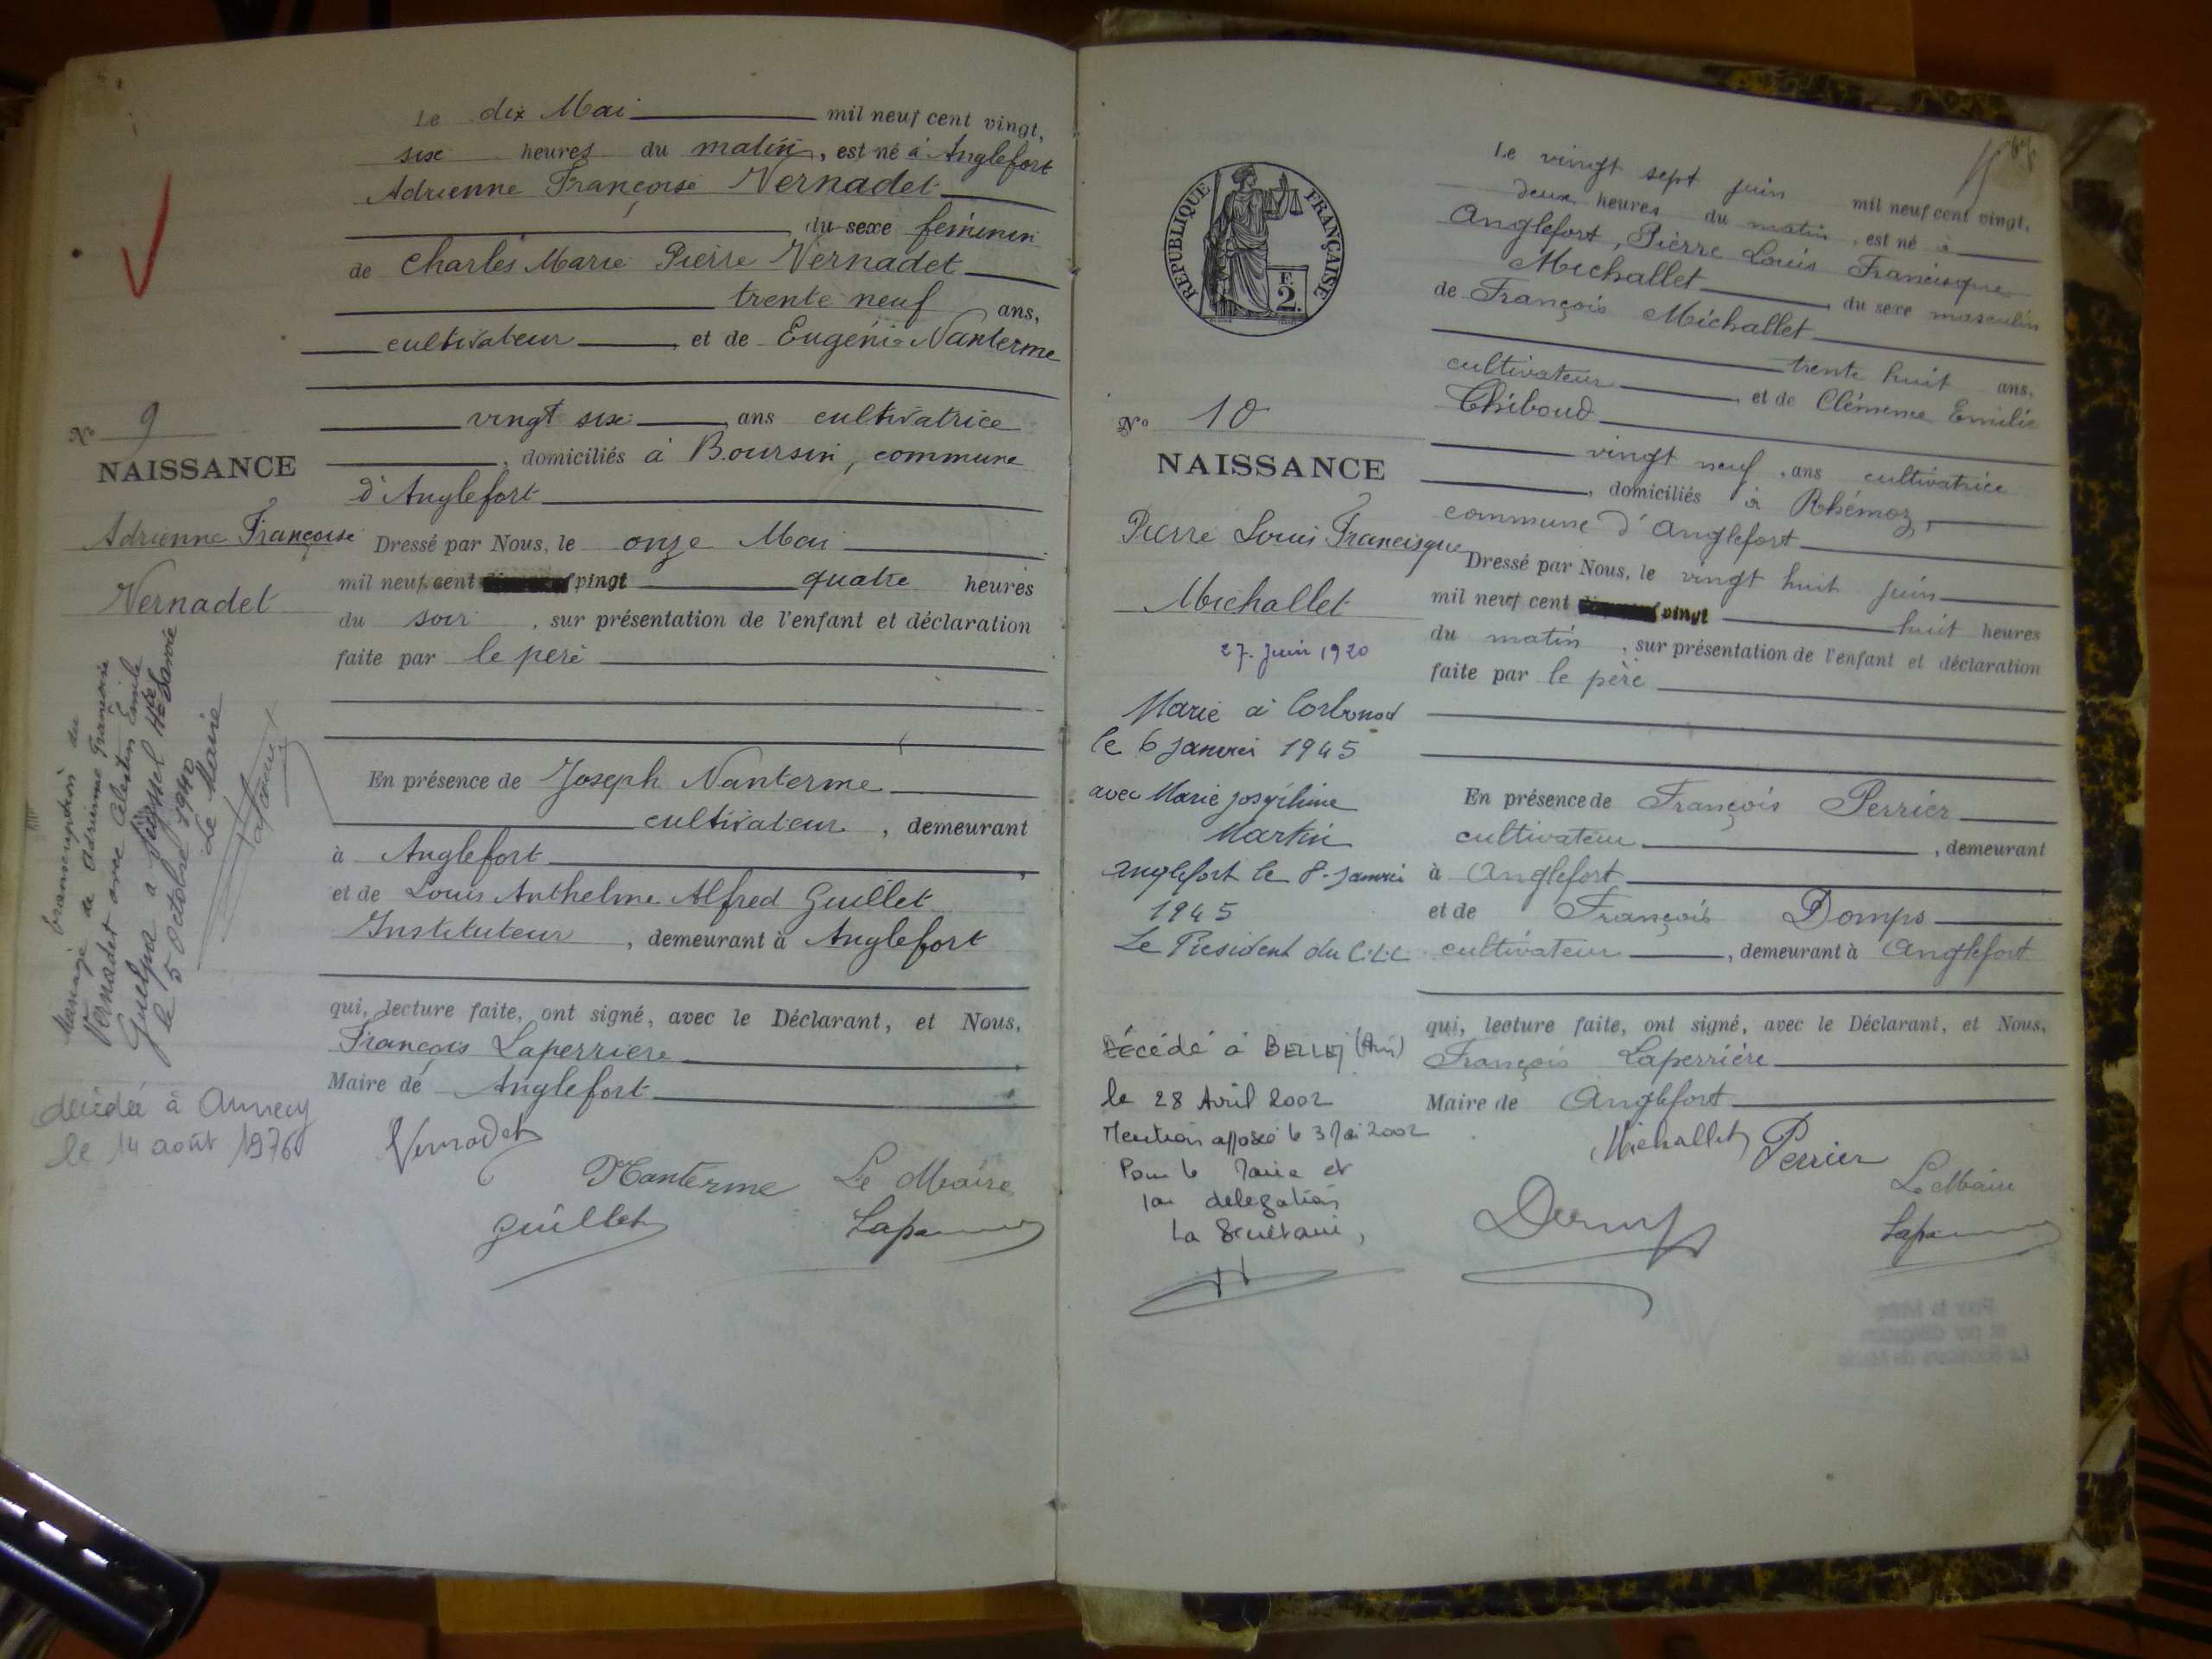 Le dix Mai mil neuf cent vingt,
six heures du matin, est né à Anglefort
Adrienne Françoise Vernadet
du sexe féminin
de Charles Marie Pierre Vernadet
trente neuf ans,
cultivateur et de Eugénie Nanterme
vingt six ans cultivatrice
, domiciliés à Boursin, commune
d'Anglefort
Dressé par Nous, le onze Mai
mil neuf cent vingt quatre heures
du soir, sur présentation de l'enfant et déclaration
faite par le père
En présence de Joseph Nanterme
cultivateur, demeurant
à Anglefort
et de Louis Anthelme Alfred Guillet
Instituteur, demeurant à Anglefort
qui, lecture faite, ont signé, avec le Déclarant, et Nous,
François Laperriere
Maire de Anglefort
Vernadet
Nanterme Le Maire
Guillet
No 9
NAISSANCE
Adrienne Françoise
Vernadet
Mariage transcription du
Vernadet de Adrienne Françoise
Vernadet avec Celestin Emile
Guelpa à Seyssel Hte Savoie
le 5 octobre 1940
Le Maire
décédée à Annecy
le 14 août 1976
REPUBLIQUE FRANÇAISE
F.
2.
No 10
NAISSANCE
Pierre Louis Francisque
Michallet
27. Juin 1920
Marié à Corbonod
le 6 janvier 1945
avec Marie Joséphine
Martin
Anglefort le 8 Janvier
1945
Le Président du C.L.L
Décédé à BELLEY (Ain)
le 28 Avril 2002
Mention apposée le 3 Mai 2002
Pour le Maire et
par délégation
La Secrétaire,
Le vingt sept juin mil neuf cent vingt,
deux heures du matin, est né à
Anglefort, Pierre Louis Francisque
Michallet du sexe masculin
de François Michallet
trente huit ans,
cultivateur et de Clémence Emilie
Thiboud
vingt neuf, ans cultivatrice
, domiciliés à Rhémoz,
commune d'Anglefort
Dressé par Nous, le vingt huit juin
mil neuf cent vingt huit heures
du matin, sur présentation de l'enfant et déclaration
faite par le père
En présence de François Perrier
cultivateur, demeurant
à Anglefort
et de François Domps
cultivateur, demeurant à Anglefort
qui, lecture faite, ont signé, avec le Déclarant, et Nous,
François Laperrière
Maire de Anglefort
Michallet Perrier
Le Maire